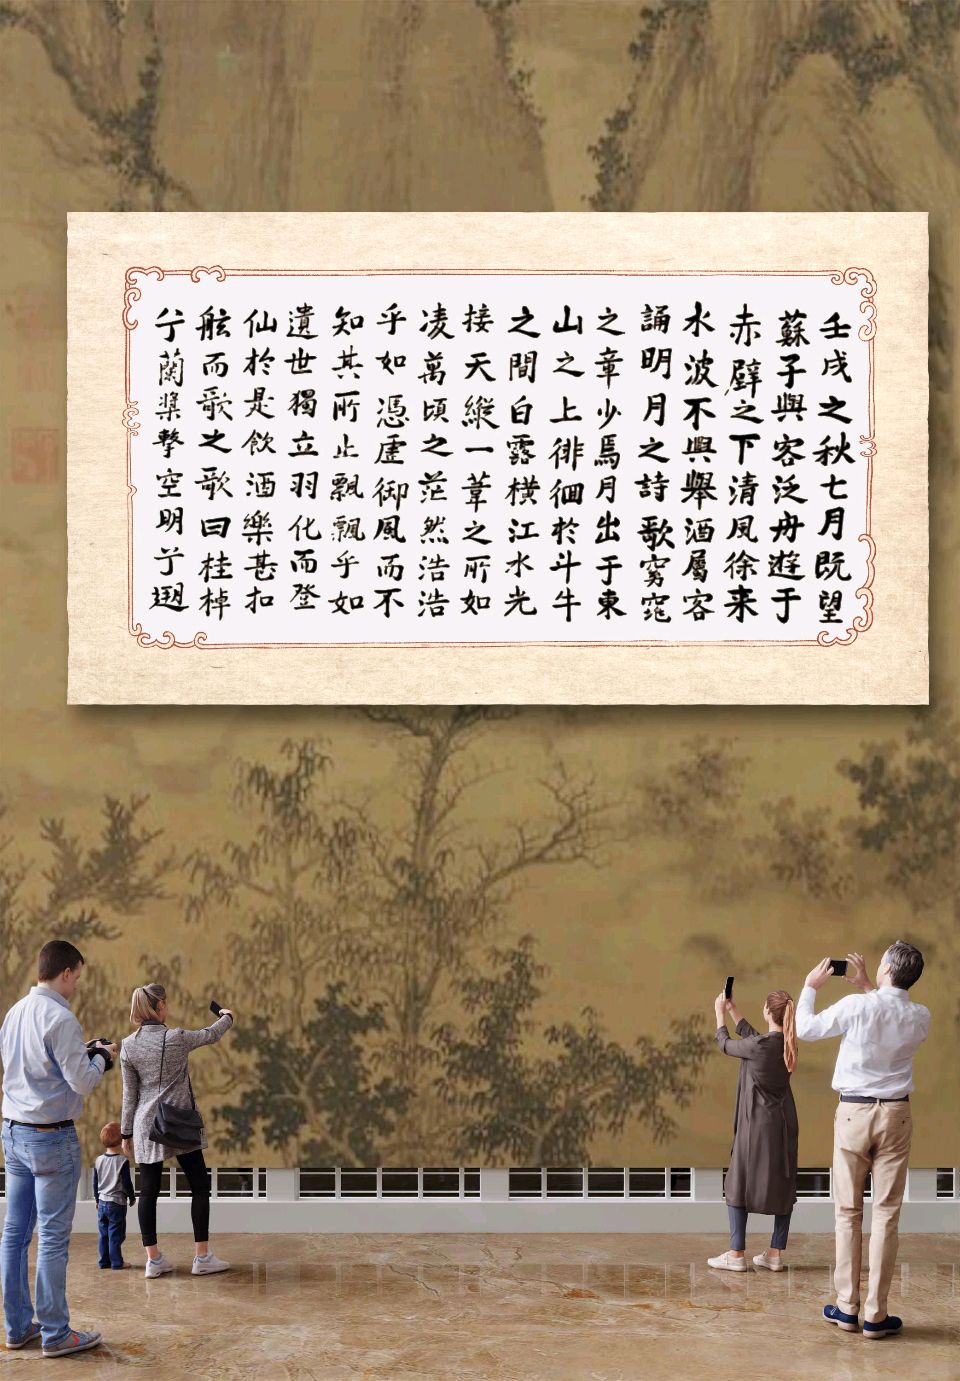 壬戌之秋七月既望
蘇子與客泛舟遊于
赤壁之下清風徐来
水波不興舉酒屬客
誦明月之詩歌窈窕
之章少焉月出于東
山之上徘徊於斗牛
之間白露横江水光
接天縱一葦之所如
凌萬頃之茫然浩浩
乎如憑虛御風而不
知其所止飄飄乎如
遺世獨立羽化而登
仙於是飲酒樂甚扣
舷而歌之歌曰桂棹
兮蘭槳擊空明兮遡